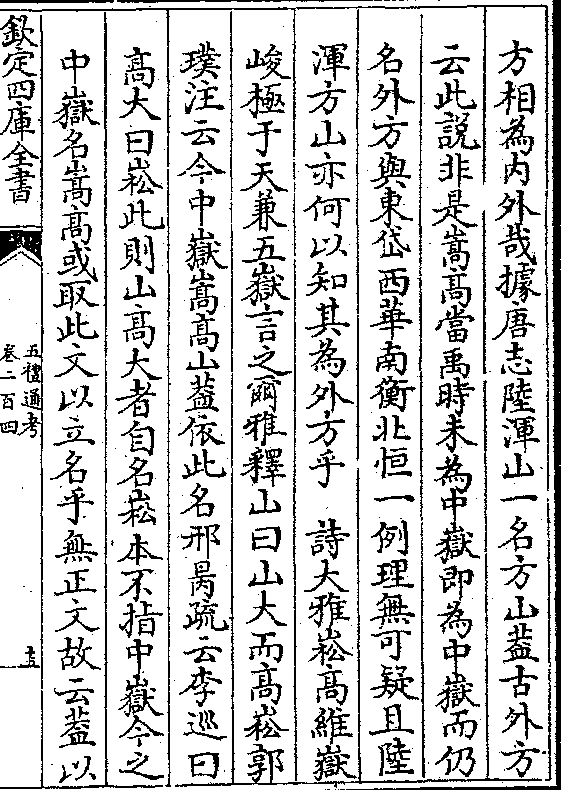 方相為内外哉據唐志陸渾山一名方山葢古外方
云此説非是嵩髙當禹時未為中嶽即為中嶽而仍
名外方與東岱西華南衡北恒一例理無可疑且陸
渾方山亦何以知其為外方乎　詩大雅崧髙維嶽
峻極于天兼五嶽言之爾雅釋山曰山大而髙崧郭
璞汪云今中嶽嵩髙山葢依此名邢昺疏云李巡曰
髙大曰崧此則山髙大者自名崧本不指中嶽今之
中嶽名嵩髙或取此文以立名乎無正文故云葢以
欽定四庫全書
五禮通考
卷二百四
十五